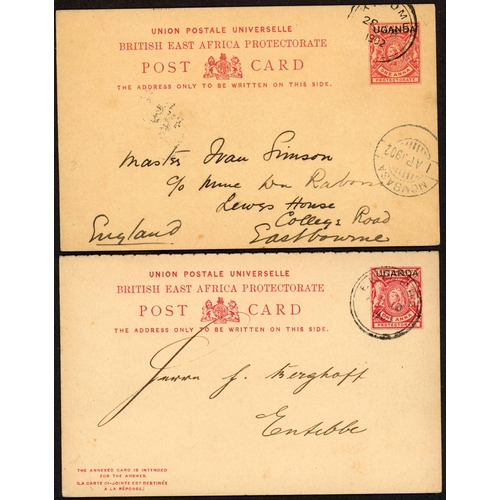 UNION POSTALE UNIVERSELLE
BRITISH EAST AFRICA PROTECTORATE
POST CARD
THE ADDRESS ONLY TO BE WRITTEN ON THIS SIDE.
UGANDA
ONE ANNA
PROTECTORATE
1902
MOMBASA
AP 1902
Master Ivan Simson
c/o
Lewes House
College Road
Eastbourne
England
UNION POSTALE UNIVERSELLE
BRITISH EAST AFRICA PROTECTORATE
POST CARD
THE ADDRESS ONLY TO BE WRITTEN ON THIS SIDE.
UGANDA
ONE ANNA
PROTECTORATE
Herrn J. Berghoff
Entebbe
THE ANNEXED CARD IS INTENDED
FOR THE ANSWER.
(LA CARTE CI-JOINTE EST DESTINÉE
A LA RÉPONSE.)